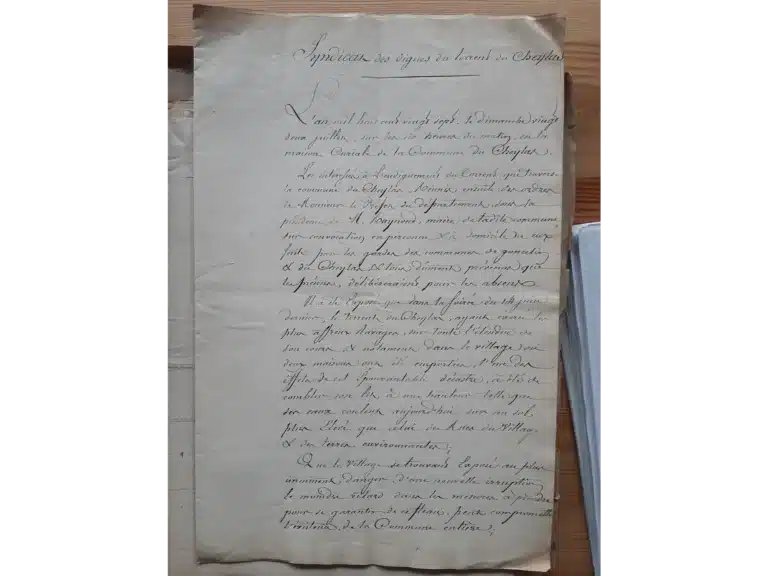 Syndicat des digues du torrent du Cheylas
L'an mil huit cent vingt sept, le dimanche vingt
deux juillet, sur les dix heures du matin, en la
maison Curiale de la Commune du Cheylas,
Les intéressés à l'endiguement du torrent qui traverse
la commune du Cheylas, Réunis ensuite des ordres
de Monsieur le Préfet du département, sous la
présidence de M. Raymond, maire de ladite commune,
sur convocation en personne & à domicile de eux
faite par les gardes des communes de goncelin
& du Cheylas & tous dûment prévenus que
les présens, délibéreraient pour les absens
Il a été Exposé que dans la soirée du 14 juin
dernier, le torrent du Cheylas, ayant exercé les
plus affreux Ravages, sur toute l'étendue de
son cours & notamment dans le village dont
deux maisons ont été emportées, l'un des
Effets de cet Épouvantable désastre, a été de
combler son lit à une hauteur telle que
ses eaux coulent aujourd'hui sur un sol
plus Élevé que celui des Rues du Village
& des terres environnantes;
Que le Village se trouvant Exposé au plus
imminent danger d'une nouvelle irruption
le moindre retard dans les mesures à prendre
pour se garantir de ce fléau, peut compromettre
l'existence de la Commune entière;